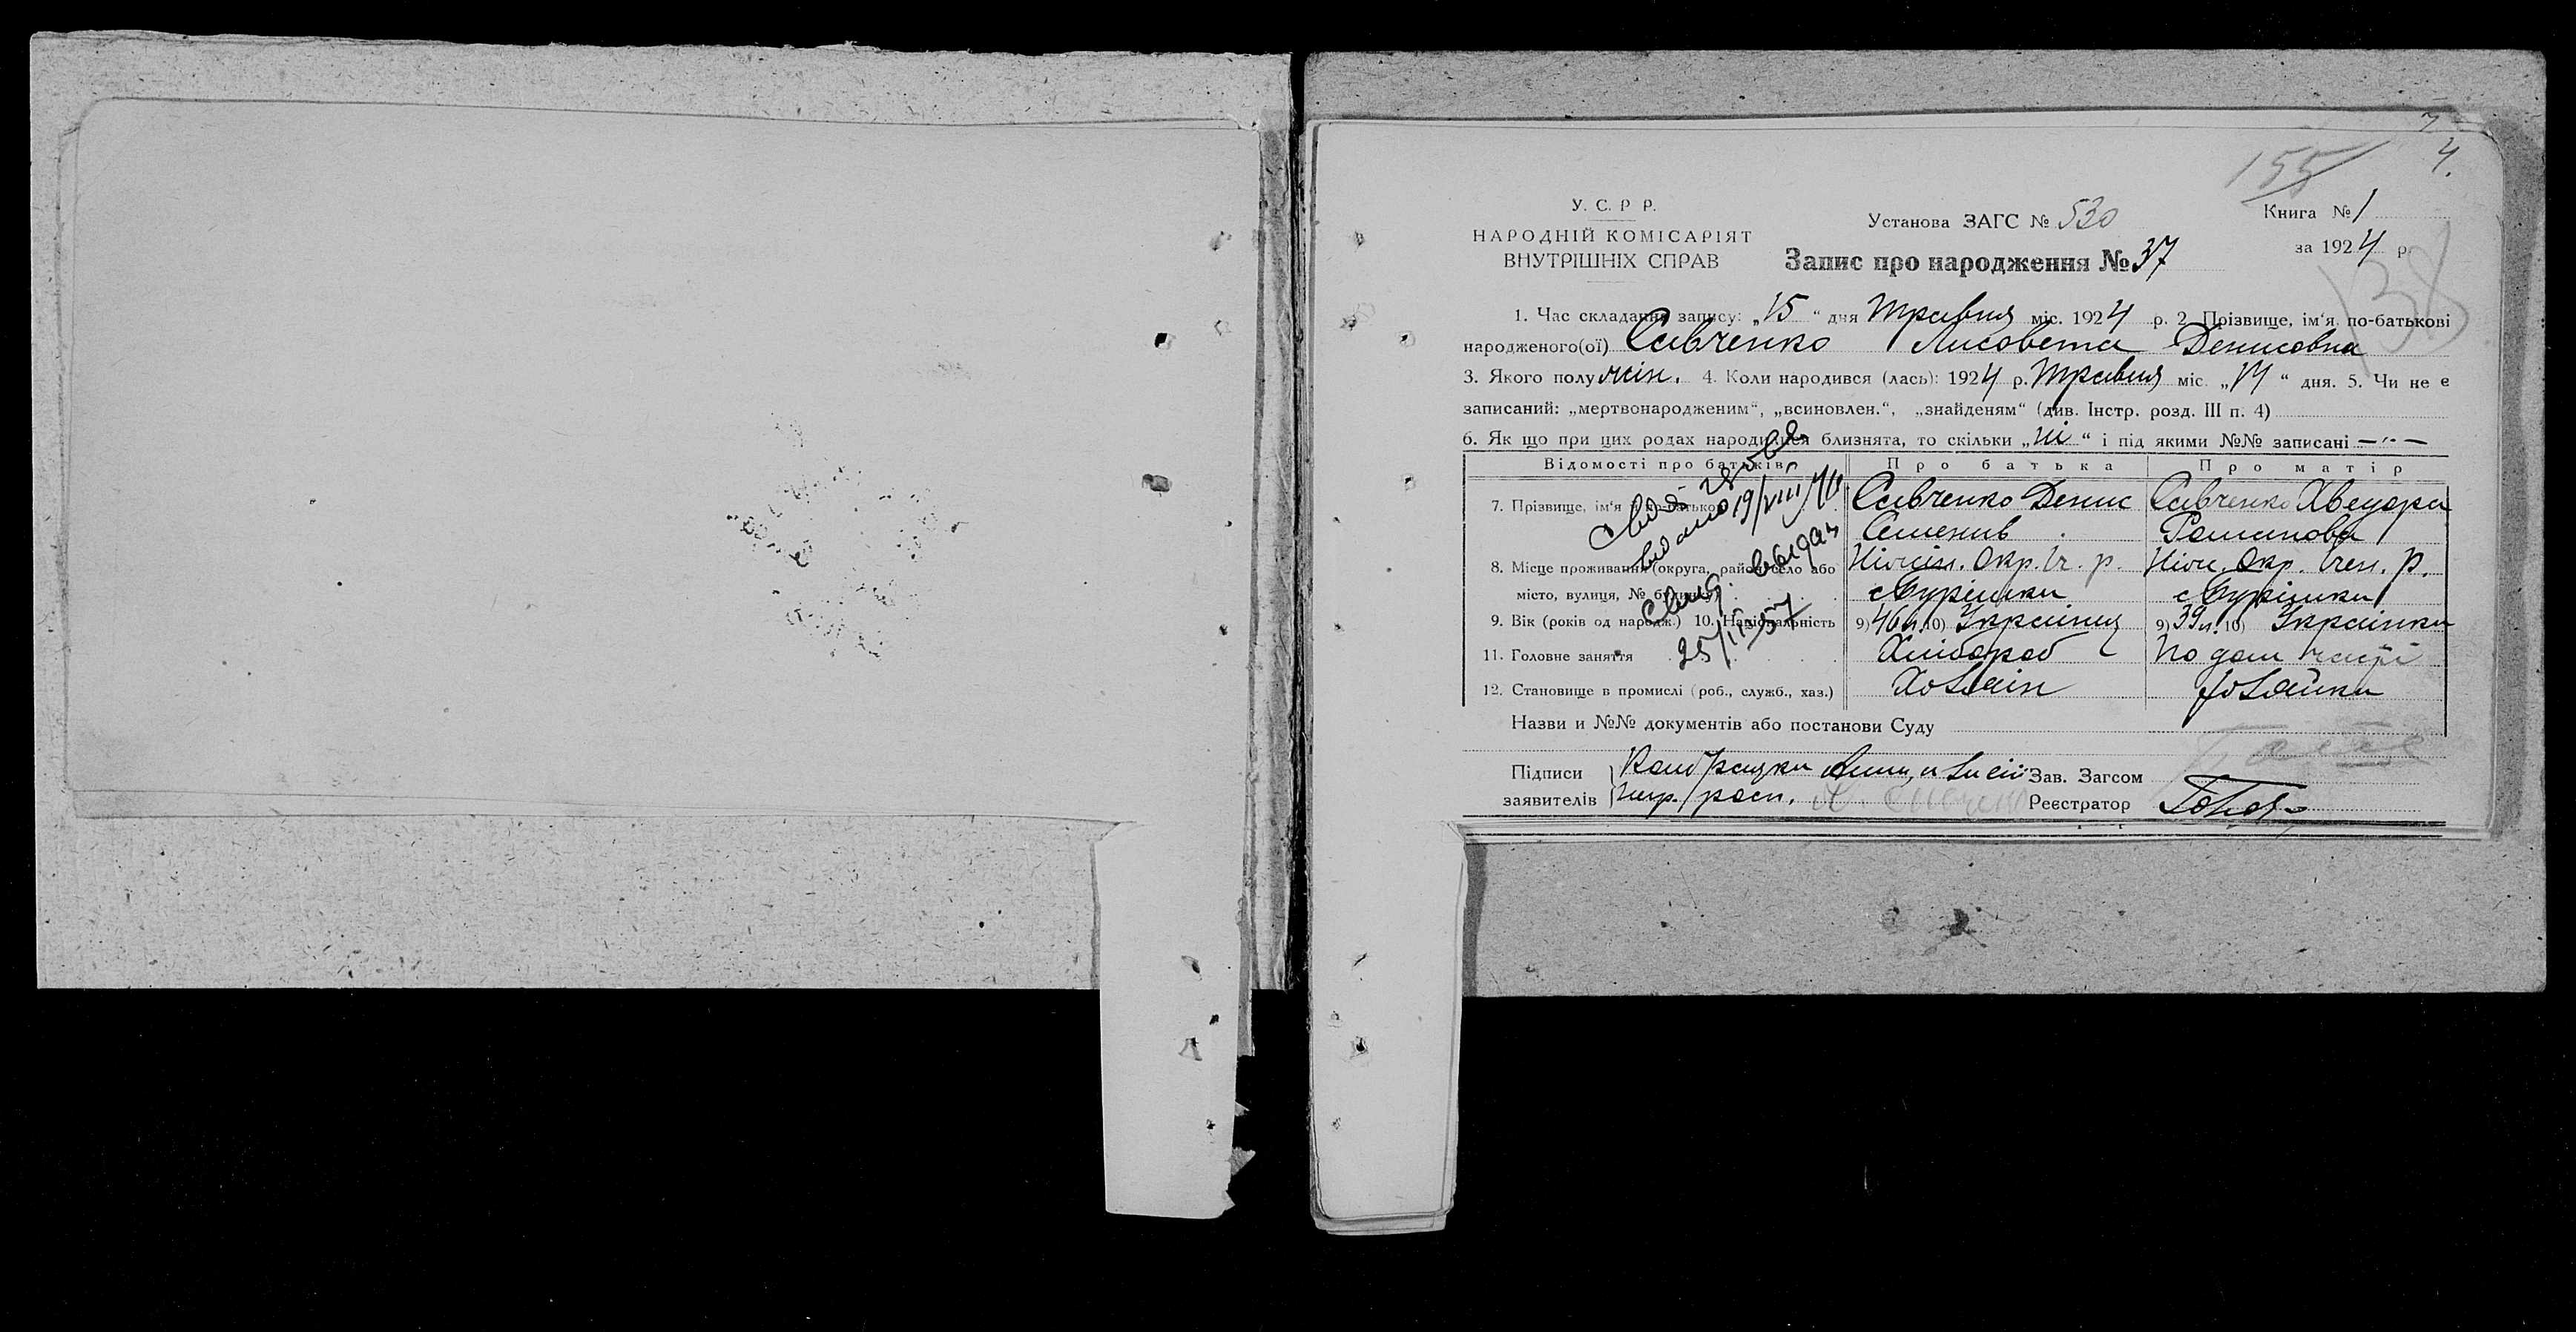 155
4.
У. С. Р Р.
НАРОДНІЙ КОМІСАРІЯТ
ВНУТРІШНІХ СПРАВ
Установа ЗАГС № 530
Книга № 1
за 1924 р.
Запис про народження № 37
138
1. Час складання запису: „15“ дня Травня міс. 1924 р. 2. Прізвище, ім'я по-батькові
народженого(ої) Савченко Лисовета Денисовна
3. Якого полу жін. 4. Коли народився (лась): 1924 р. Травня міс. „14“ дня. 5. Чи не є
записаний: „мертвонародженим“, „всиновлен.“, „знайденям“ (див. Інстр. розд. III п. 4)
6. Як що при цих родах народилися близнята, то скільки „ні“ і під якими №№ записані — " —
Відомості про батьків Про батька Про матір
7. Прізвище, ім'я по-батькові Савченко Денис Савченко Хведора
Семенив Романова
8. Місце проживання (округа, район, село або Ніжін. Окр. Іч. р. Ніж. Окр. Ічен. р.
місто, вулиця, № будинку) с Бурімки с Бурімки
9. Вік (років од народж.) 10. Національність 9) 46 л. 10) Українец 9) 39 л. 10) Українка
11. Головне заняття Хлібороб По дом
12. Становище в промислі (роб., служб., хаз.) Хозяін Хозяйка
видано 19/VIII
выдан
Назви и №№ документів або постанови Суду
Підписи
заявителів
Зав. Загсом
Реєстратор